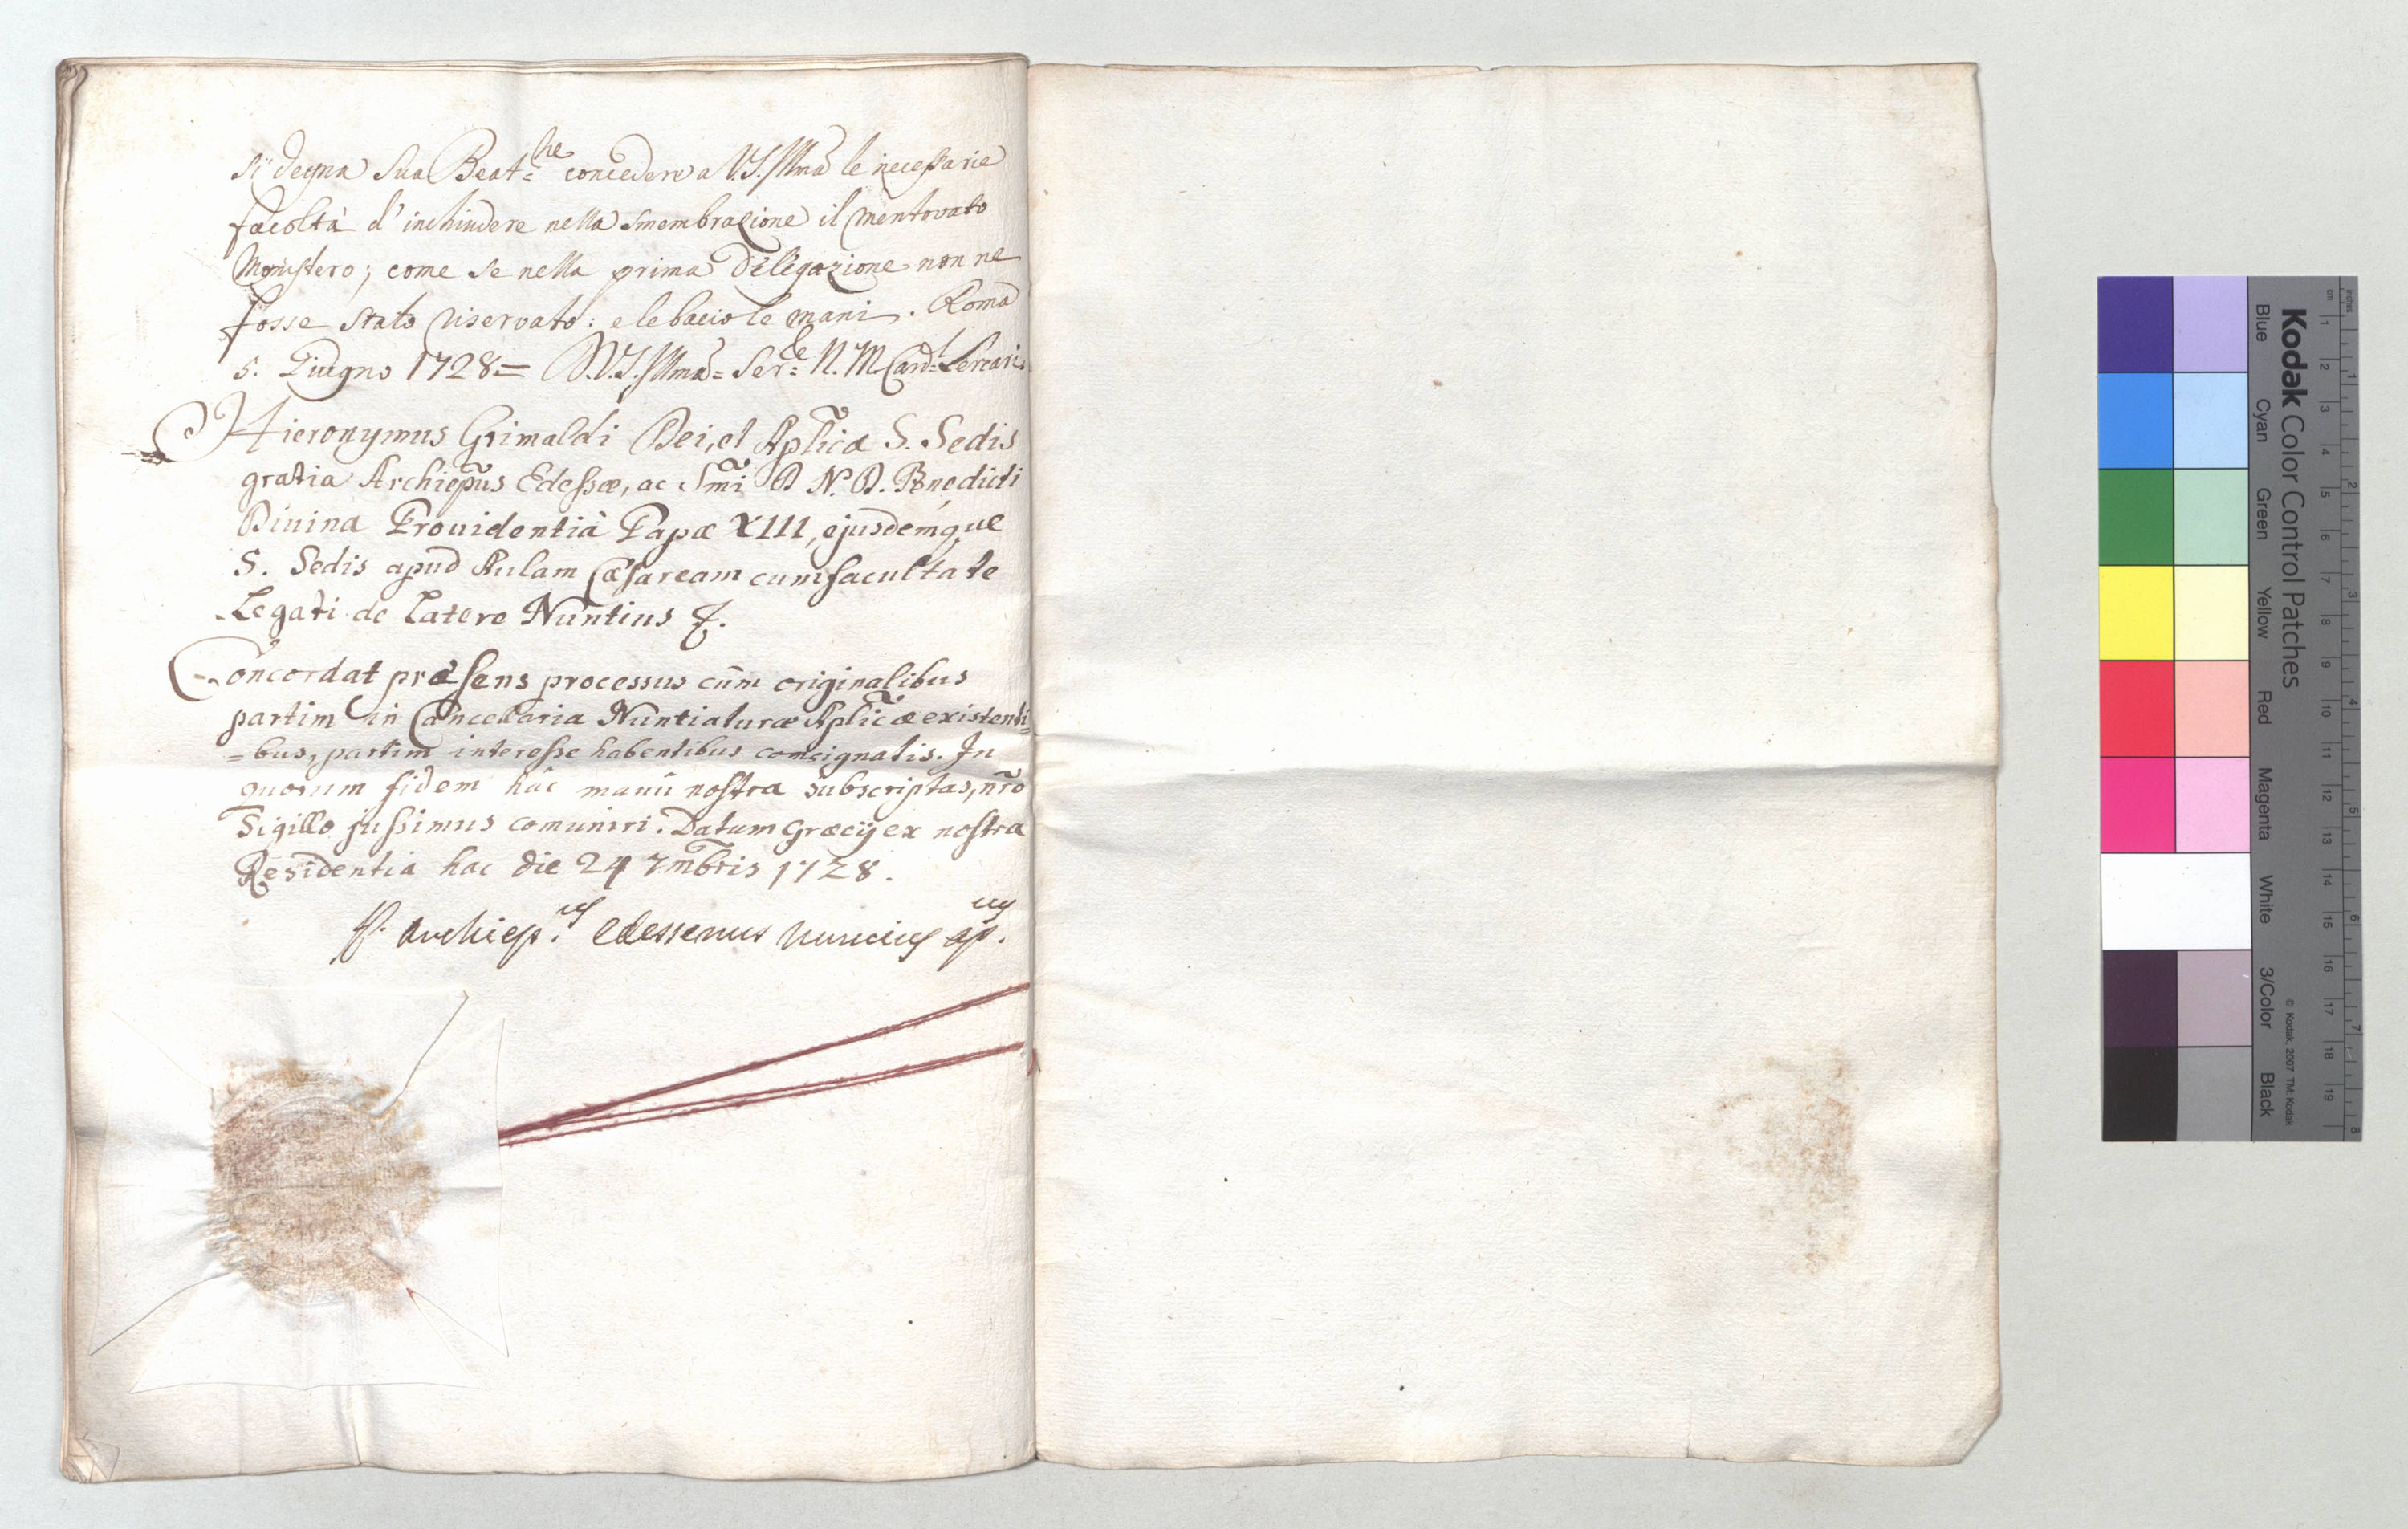 si degna Sua Beat:ne concedere a V.S. Illma le necessarie
facoltà d'inchiudere nella smembrazione il mentovato
Monistero; come se nella prima delegazione non ne
fosse stato riservato: e le bacio le mani. Roma
5. Giugno 1728 = D.V.S. Illma = Ser:e N. M. Card:l Lercari.
Hieronymus Grimaldi Dei, et Aplicæ S. Sedis
gratia Archiepus Edessæ, ac Smi D. N. D. Benedicti
Divina Providentia Papæ XIII, ejusdemque
S. Sedis apud Aulam Cæsaream cum facultate
Legati de Latere Nuntius
Concordat præsens processus cum originalibus
partim in Cancellaria Nuntiaturæ Aplicæ existenti
=bus, partim interesse habentibus consignatis. In
quorum fidem hâc manu nostra subscriptas, nro
Sigillo jussimus comuniri. Datum Græcij ex nostra
Residentia hac die 24 7mbris 1728.
H. Archiep.us Edessenus Nuncius ap.cus
Kodak Color Control Patches
Blue Cyan Green Yellow Red Magenta White 3/Color Black
© Kodak, 2007 TM: Kodak
cm 1 2 3 4 5 6 7 8 9 10 11 12 13 14 15 16 17 18 19
Inches 1 2 3 4 5 6 7 8